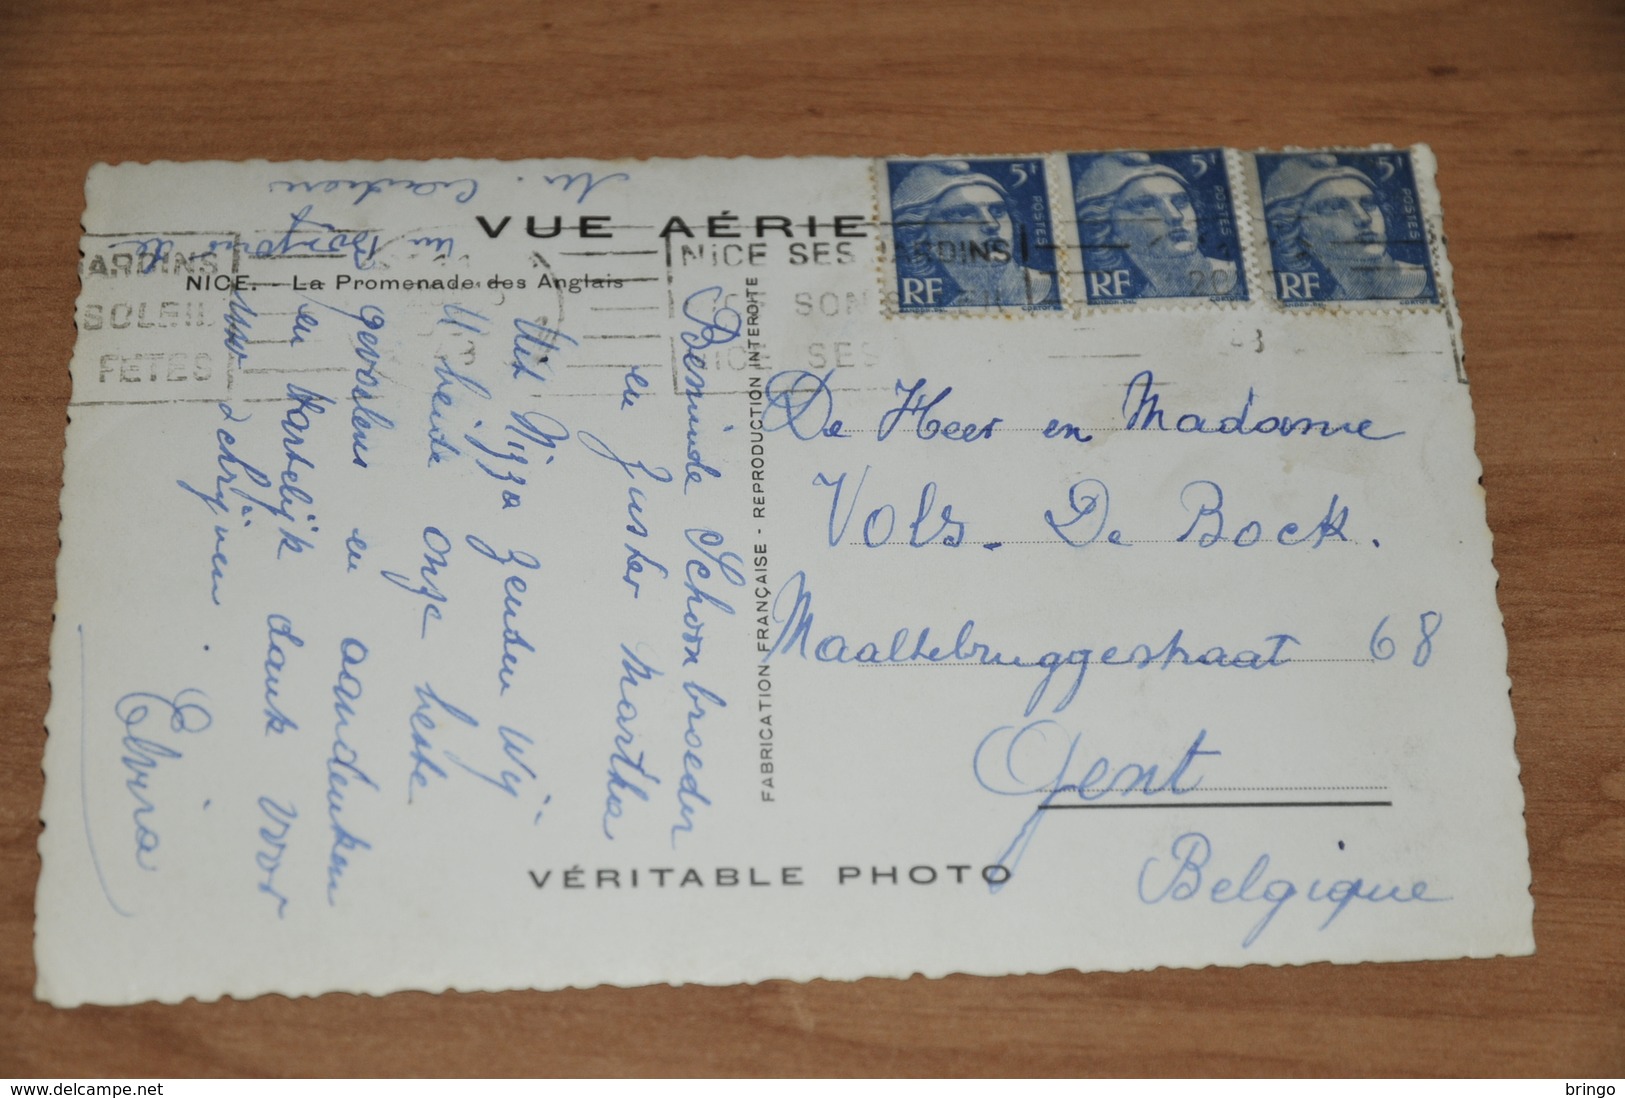 VUE AÉRIE
NICE. — La Promenade des Anglais
ARDINS
SOLEIL
FETES
NICE SES JARDINS
SON SOLEIL
NICE SES
5F
POSTES
RF
5F
POSTES
RF
5F
POSTES
RF
Beminde Schoonbroeder
en Zuster Martha
Uit Nizza zenden wij
U beide onze beste
gevoelens en aandenken
en hartelijk dank voor
uw schrijven.
Elvira
FABRICATION FRANÇAISE - REPRODUCTION INTERDITE
De Heer en Madame
Vols - De Bock.
Maaltebruggestraat 68
Gent
Belgique
VÉRITABLE PHOTO
bringo
Delcampe.net